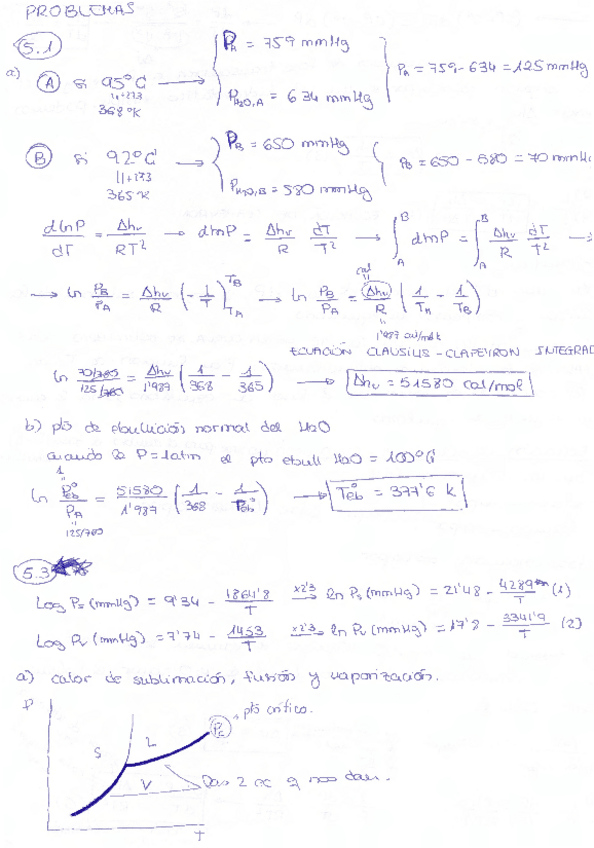 PROBLEMAS
5.1
a) A si 95°C → P_A = 759 mmHg
368°K P_H2O,A = 634 mmHg
P_A = 759 - 634 = 125 mmHg
B si 92°C → P_B = 650 mmHg
365°K P_H2O,B = 580 mmHg
P_B = 650 - 580 = 70 mmHg
dlnP/dT = Δhv/RT² → dlnP = Δhv/R dT/T² → ∫_A^B dlnP = ∫_A^B Δhv/R dT/T² →
→ ln P_B/P_A = Δhv/R (-1/T)_{T_A}^{T_B} → ln P_B/P_A = Δhv/R (1/T_A - 1/T_B)
cal
1'987 cal/molK
ECUACIÓN CLAUSIUS-CLAPEYRON INTEGRAD
ln 70/760 / 125/760 = Δhv/1'987 (1/368 - 1/365) → Δhv = 51580 cal/mol
b) pto de ebullición normal del H2O
cuando la P = 1atm el pto ebull H2O = 100°C
1
ln P°eb/P_A = 51580/1'987 (1/368 - 1/T°eb) → T°eb = 377'6 K
125/760
5.3
Log Ps (mmHg) = 9'34 - 1864'8/T ×2'3→ ln Ps (mmHg) = 21'48 - 4289/T (1)
Log PL (mmHg) = 7'74 - 1453/T ×2'3→ ln PL (mmHg) = 17'8 - 3341'9/T (2)
a) calor de sublimación, fusión y vaporización.
P
Pc → pto crítico.
S L
V
Las 2 ec q nos dan.
T